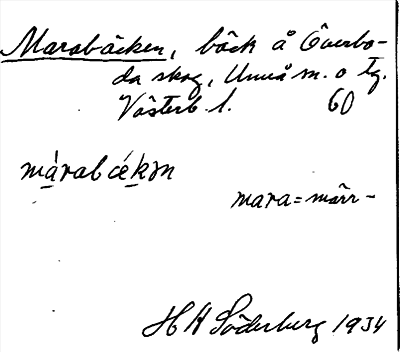 Marabäcken, bäck å Överbo-
da skog, Umeå sn. o tg.
Västerb. l. 60
márabǽkən
mara = märr-
H A Söderberg 1934